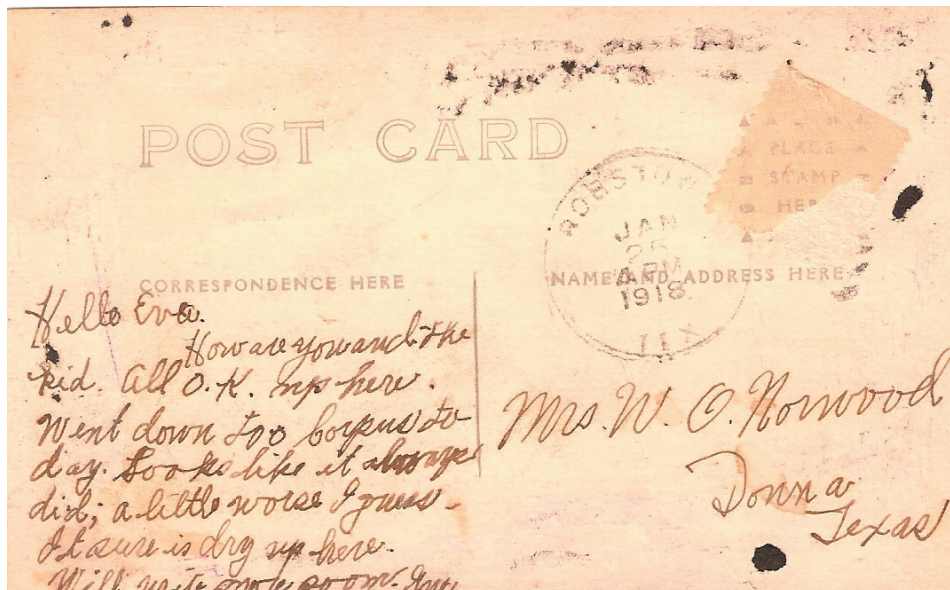 POST CARD
PLACE
STAMP
HERE
ROBSTOWN
JAN
25
PM
1918
TEX
CORRESPONDENCE HERE
NAME AND ADDRESS HERE
Hello Eva.
How are you and the
kid. All O.K. up here.
Went down too Corpus to-
day. Looks like it always
did; a little worse I guess.
It sure is dry up here.
Will write more soon.
Mrs. W. O. Norwood
Donna
Texas